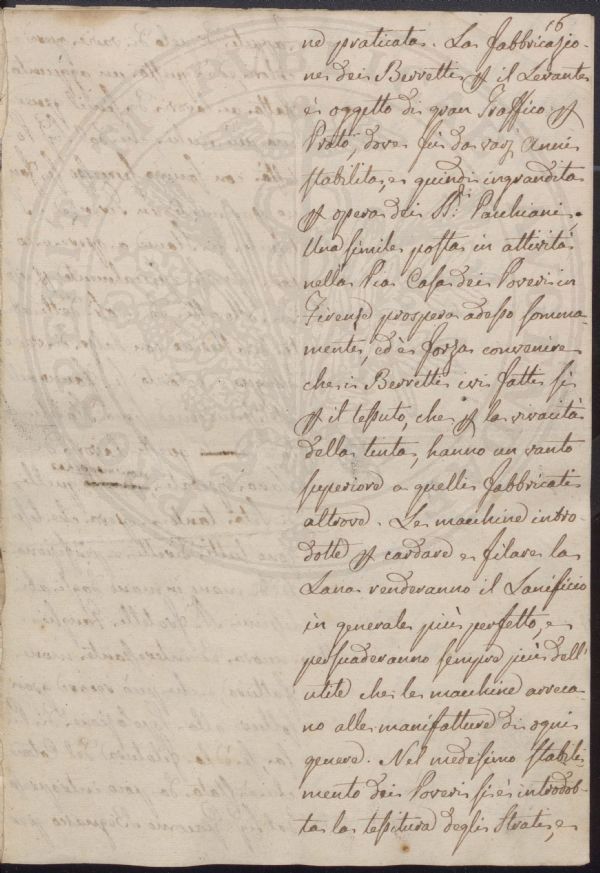 16
ne praticata. La Fabbricazio-
ne dei Berretti p il Levante
è oggetto di gran Traffico p
Prato, dove fù da varj Anni
stabilita, e quindi ingrandita
p opera dei Sri. Pacchiani.
Una simile posta in attività
nella Pia Casa dei Poveri in
Firenze prospera adesso somma-
mente, ed è forza convenire
che i Berretti ivi fatti sì
p il tessuto, che p la vivacità
della tinta, hanno un vanto
superiore a quelli fabbricati
altrove. Le macchine intro-
dotte p cardare e filare la
Lana renderanno il Lanificio
in generale più perfetto, e
persuaderanno sempre più dell'
utile che le macchine arreca-
no alle manifatture di ogni
genere. Nel medesimo stabili-
mento dei Poveri si è introdot-
ta la tessitura degli Strati, e